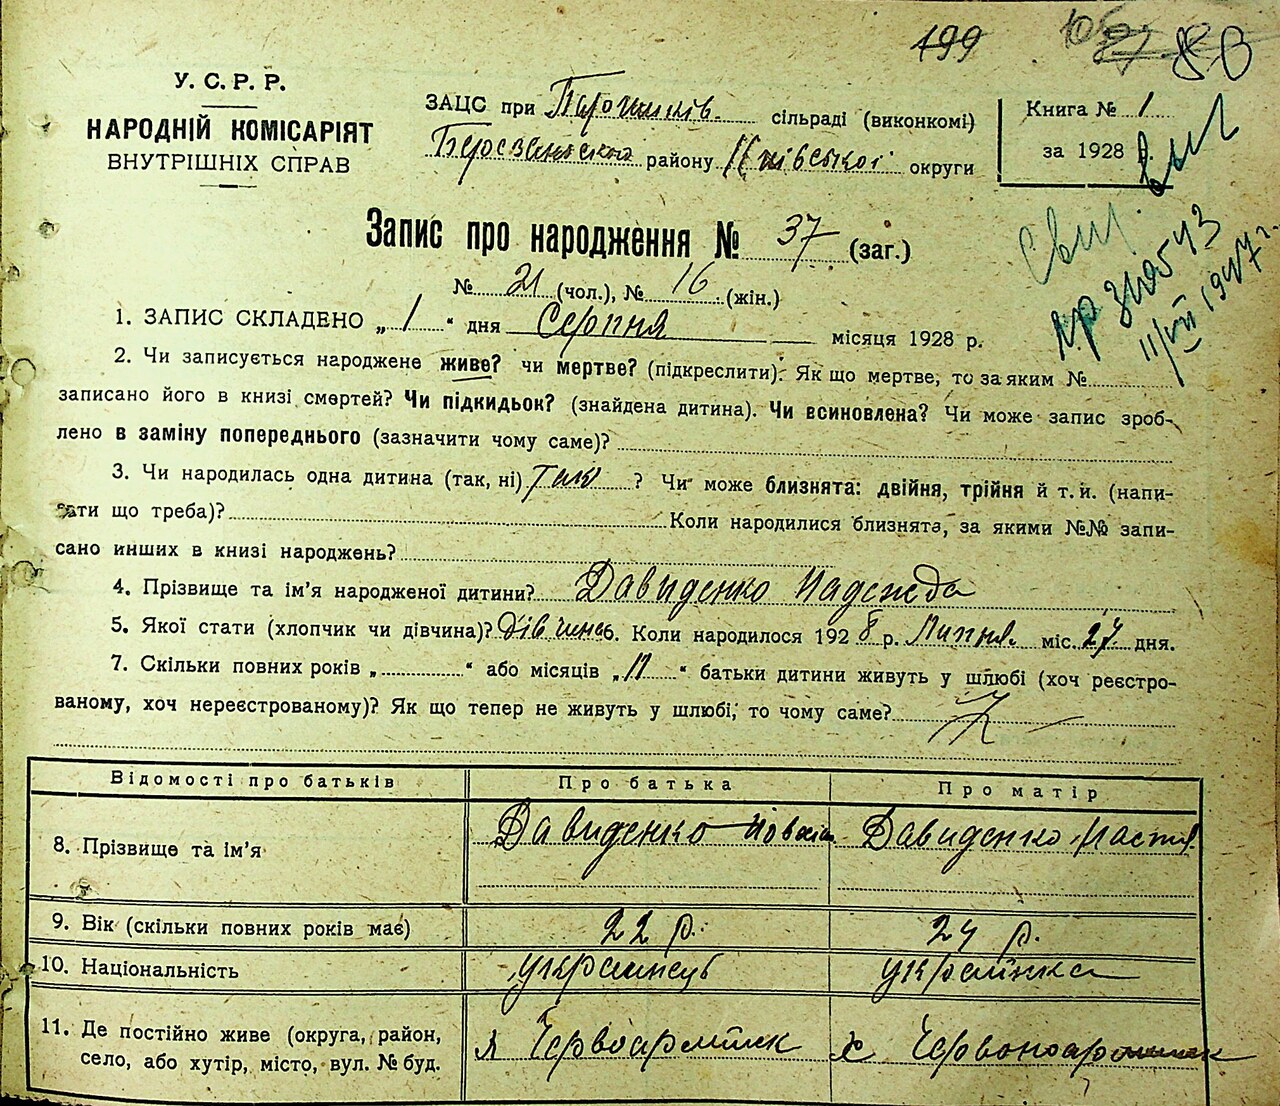 199
У. С. Р. Р.
НАРОДНІЙ КОМІСАРІЯТ
ВНУТРІШНІХ СПРАВ
ЗАЦС при сільраді (виконкомі)
району Київської округи
Книга № 1
за 1928
Запис про народження № 37 (заг.)
№ 21 (чол.), № 16 (жін.)
11/VII 1947 г.
1. ЗАПИС СКЛАДЕНО „ 1 “ дня Серпня місяця 1928 р.
2. Чи записується народжене живе? чи мертве? (підкреслити). Як що мертве, то за яким №
записано його в книзі смертей? Чи підкидьок? (знайдена дитина). Чи всиновлена? Чи може запис зроб-
лено в заміну попереднього (зазначити чому саме)?
3. Чи народилась одна дитина (так, ні) так ? Чи може близнята: двійня, трійня й т. и. (напи-
сати що треба)? Коли народилися близнята, за якими №№ запи-
сано инших в книзі народжень?
4. Прізвище та ім'я народженої дитини? Давиденко Надежда
5. Якої стати (хлопчик чи дівчина)? Коли народилося 1928 р. Липня міс. 27 дня.
7. Скільки повних років „ “ або місяців „ 11 “ батьки дитини живуть у шлюбі (хоч реєстро-
ваному, хоч нереєстрованому)? Як що тепер не живуть у шлюбі, то чому саме?
Відомості про батьків Про батька Про матір
8. Прізвище та ім'я Давиденко Давиденко Настя
9. Вік (скільки повних років має) 22 р. 24 р.
10. Національність українець українка
11. Де постійно живе (округа, район,
село, або хутір, місто, вул. № буд.